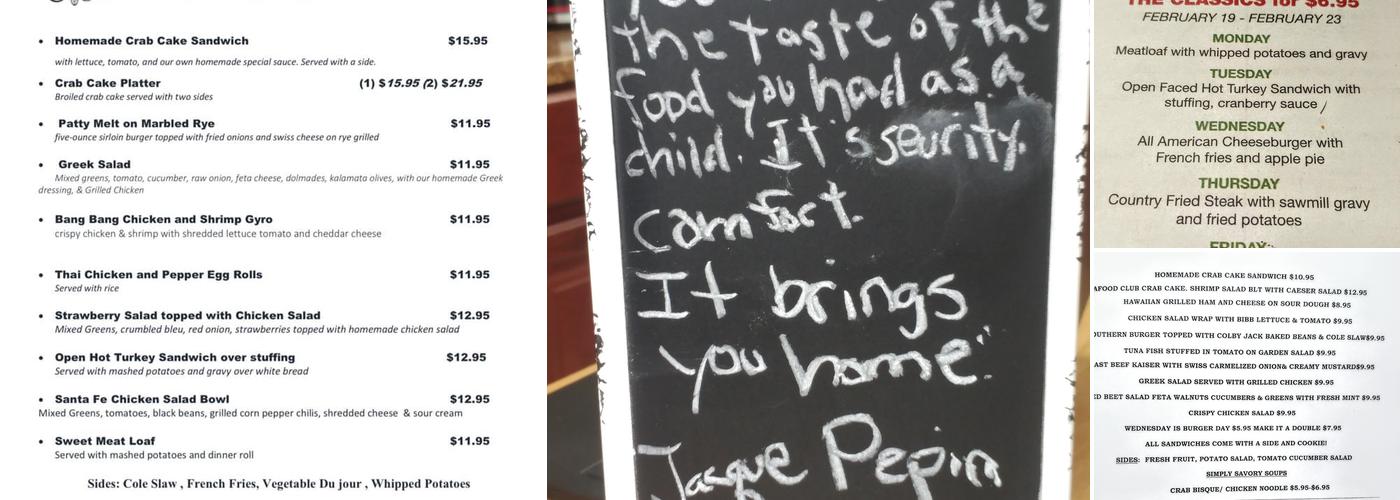 • Homemade Crab Cake Sandwich $15.95
with lettuce, tomato, and our own homemade special sauce. Served with a side.
• Crab Cake Platter (1) $15.95 (2) $21.95
Broiled crab cake served with two sides
• Patty Melt on Marbled Rye $11.95
five-ounce sirloin burger topped with fried onions and swiss cheese on rye grilled
• Greek Salad $11.95
Mixed greens, tomato, cucumber, raw onion, feta cheese, dolmades, kalamata olives, with our homemade Greek
dressing, & Grilled Chicken
• Bang Bang Chicken and Shrimp Gyro $11.95
crispy chicken & shrimp with shredded lettuce tomato and cheddar cheese
• Thai Chicken and Pepper Egg Rolls $11.95
Served with rice
• Strawberry Salad topped with Chicken Salad $12.95
Mixed Greens, crumbled bleu, red onion, strawberries topped with homemade chicken salad
• Open Hot Turkey Sandwich over stuffing $12.95
Served with mashed potatoes and gravy over white bread
• Santa Fe Chicken Salad Bowl $12.95
Mixed Greens, tomatoes, black beans, grilled corn pepper chilis, shredded cheese & sour cream
• Sweet Meat Loaf $11.95
Served with mashed potatoes and dinner roll
Sides: Cole Slaw , French Fries, Vegetable Du jour , Whipped Potatoes
the taste of the
food you had as a
child. It's seurity.
comfort.
It brings
you home."
Jacque Pepin
THE CLASSICS for $6.95
FEBRUARY 19 - FEBRUARY 23
MONDAY
Meatloaf with whipped potatoes and gravy
TUESDAY
Open Faced Hot Turkey Sandwich with
stuffing, cranberry sauce
WEDNESDAY
All American Cheeseburger with
French fries and apple pie
THURSDAY
Country Fried Steak with sawmill gravy
and fried potatoes
FRIDAY:
HOMEMADE CRAB CAKE SANDWICH $10.95
AFOOD CLUB CRAB CAKE. SHRIMP SALAD BLT WITH CAESER SALAD $12.95
HAWAIIAN GRILLED HAM AND CHEESE ON SOUR DOUGH $8.95
CHICKEN SALAD WRAP WITH BIBB LETTUCE & TOMATO $9.95
OUTHERN BURGER TOPPED WITH COLBY JACK BAKED BEANS & COLE SLAW$9.95
TUNA FISH STUFFED IN TOMATO ON GARDEN SALAD $9.95
AST BEEF KAISER WITH SWISS CARMELIZED ONION& CREAMY MUSTARD$9.95
GREEK SALAD SERVED WITH GRILLED CHICKEN $9.95
ED BEET SALAD FETA WALNUTS CUCUMBERS & GREENS WITH FRESH MINT $9.95
CRISPY CHICKEN SALAD $9.95
WEDNESDAY IS BURGER DAY $5.95 MAKE IT A DOUBLE $7.95
ALL SANDWICHES COME WITH A SIDE AND COOKIE!
SIDES: FRESH FRUIT, POTATO SALAD, TOMATO CUCUMBER SALAD
SIMPLY SAVORY SOUPS
CRAB BISQUE/ CHICKEN NOODLE $5.95-$6.95